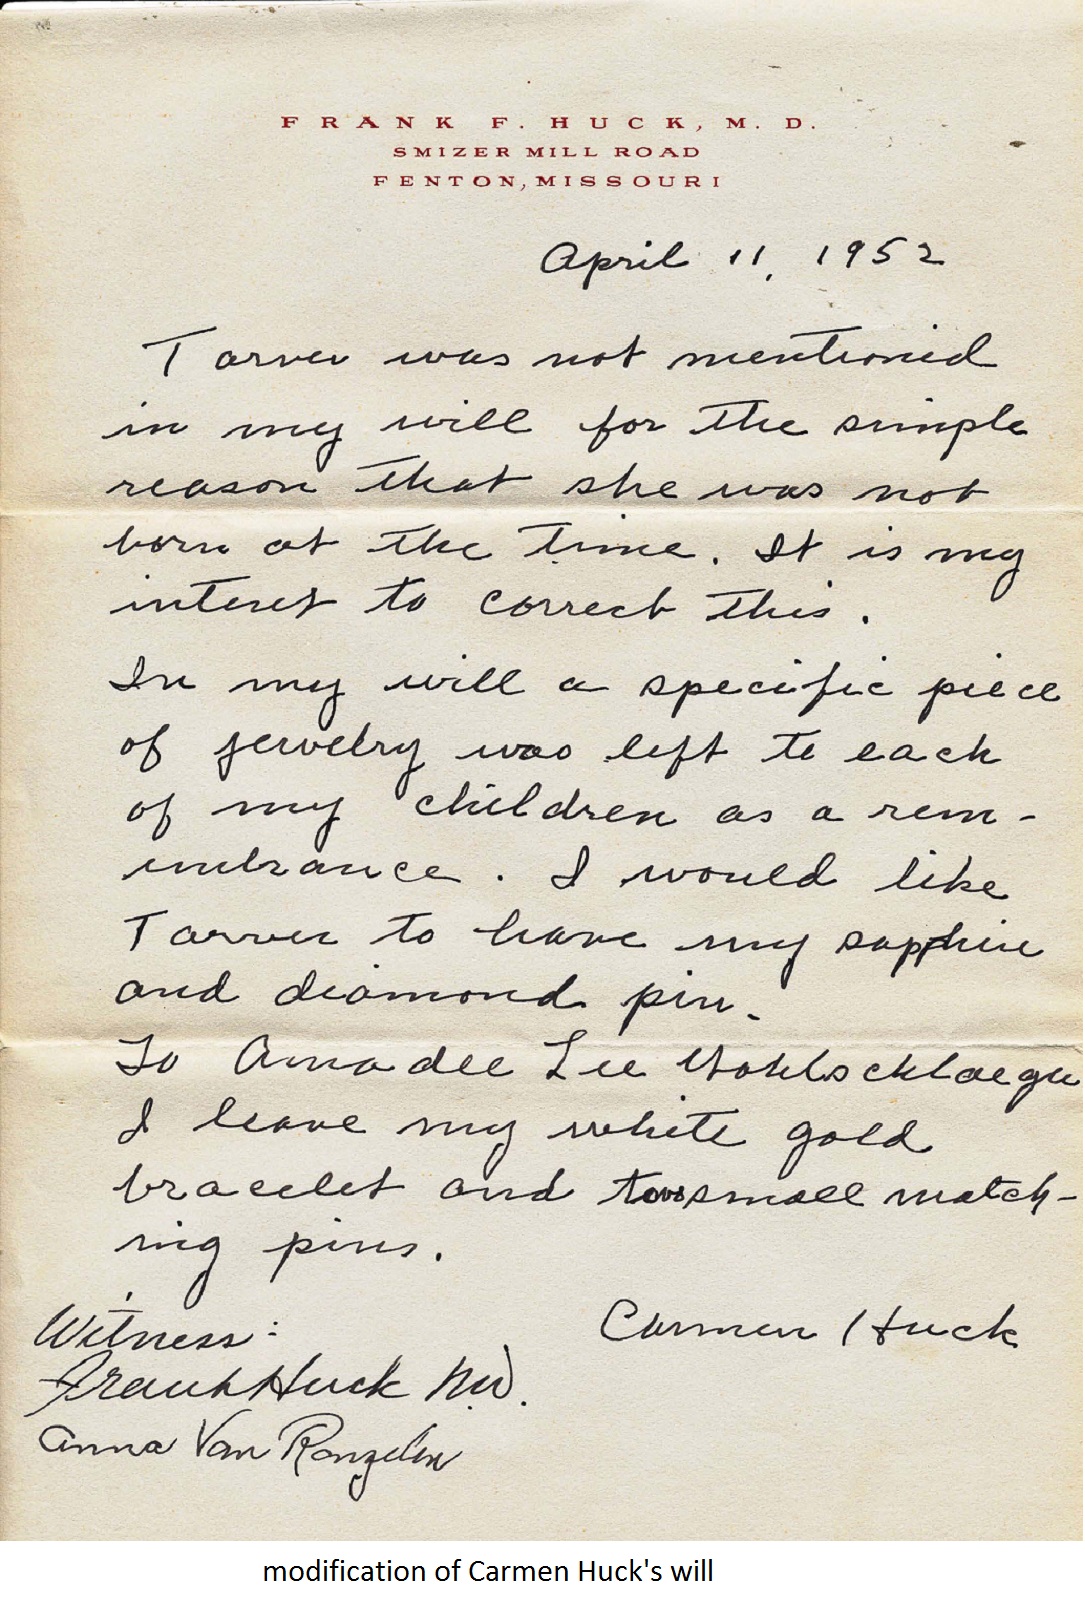 FRANK F. HUCK, M. D.
SMIZER MILL ROAD
FENTON, MISSOURI
April 11, 1952
Tarver was not mentioned
in my will for the simple
reason that she was not
born at the time. It is my
interest to correct this.
In my will a specific piece
of jewelry was left to each
of my children as a rem-
embrance. I would like
Tarver to have my sapphire
and diamond pin.
To Amadee Lee Wohlschlaeger
I leave my white gold
bracelet and two small match-
ing pins.
Carmen Huck
Witness:
Frank Huck M.D.
Anna Van Ronzelen
modification of Carmen Huck's will